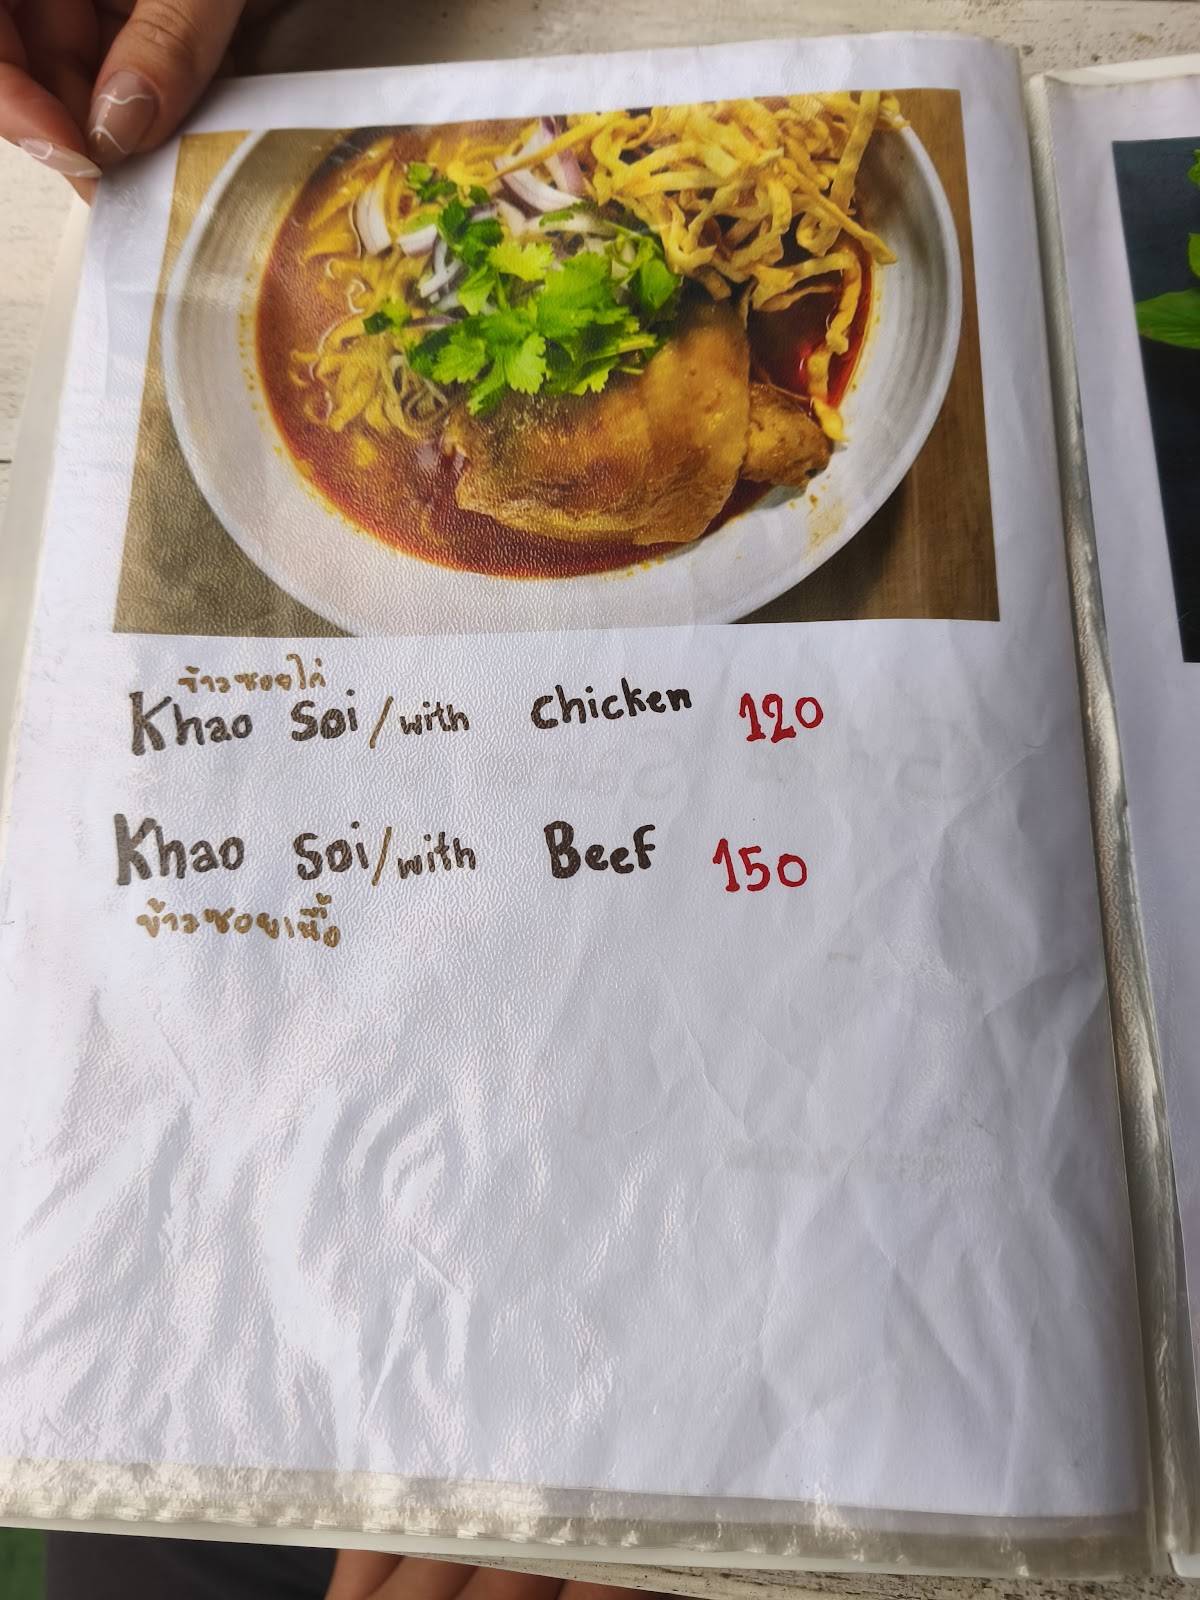 ข้าวซอยไก่
Khao Soi/with Chicken 120
Khao Soi/with Beef 150
ข้าวซอยเนื้อ